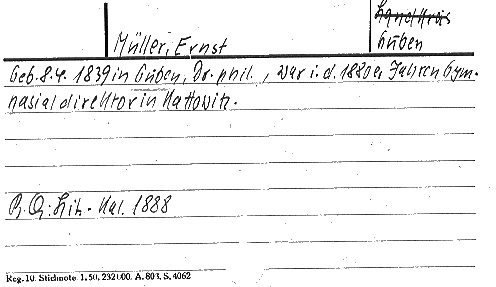 Landkreis
Müller, Ernst
Guben
Geb. 8.4. 1839 in Guben, Dr. phil., war i. d. 1880er Jahren Gym-
nasialdirektor in Kattowitz.
B. Q: Lit.-Kal. 1888
Reg. 10. Stichnote 1. 50, 2321.00. A. 803. S. 4062